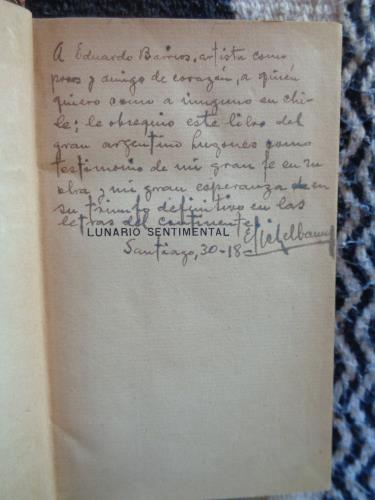 A Eduardo Barrios, artista como
pocos y amigo de corazón, a quién
quiero como a ninguno en Chi-
le; le obsequio este libro del
gran argentino Lugones como
testimonio de mi gran fe en su
obra y mi gran esperanza en
su triunfo definitivo en las
letras del continente
LUNARIO SENTIMENTAL
Santiago, 30-18-